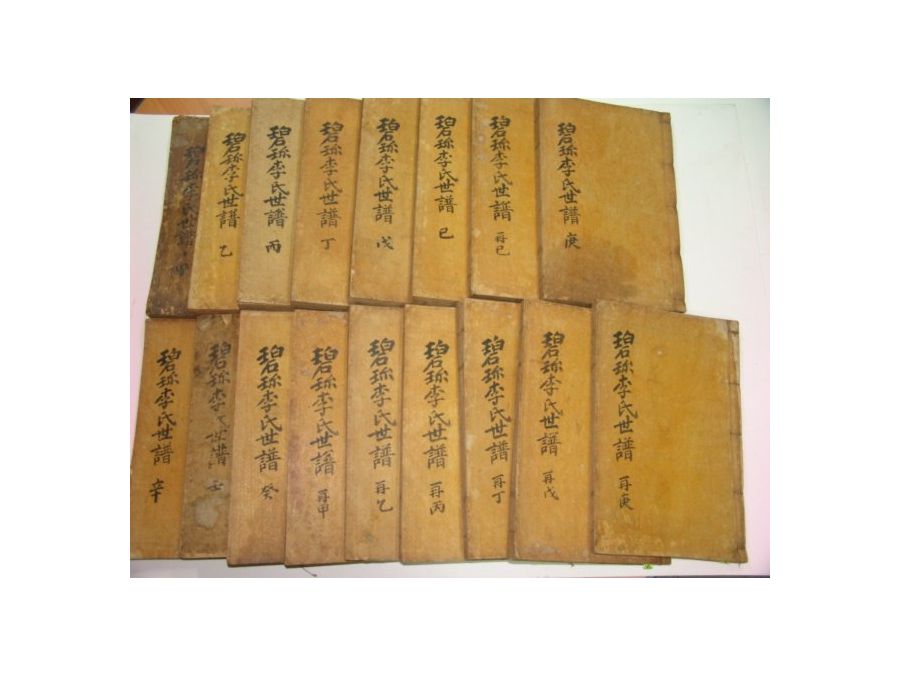 碧珎李氏世譜 甲
碧珎李氏世譜 乙
碧珎李氏世譜 丙
碧珎李氏世譜 丁
碧珎李氏世譜 戊
碧珎李氏世譜 己
碧珎李氏世譜 再己
碧珎李氏世譜 庚
碧珎李氏世譜 辛
碧珎李氏世譜 壬
碧珎李氏世譜 癸
碧珎李氏世譜 再甲
碧珎李氏世譜 再乙
碧珎李氏世譜 再丙
碧珎李氏世譜 再丁
碧珎李氏世譜 再戊
碧珎李氏世譜 再庚